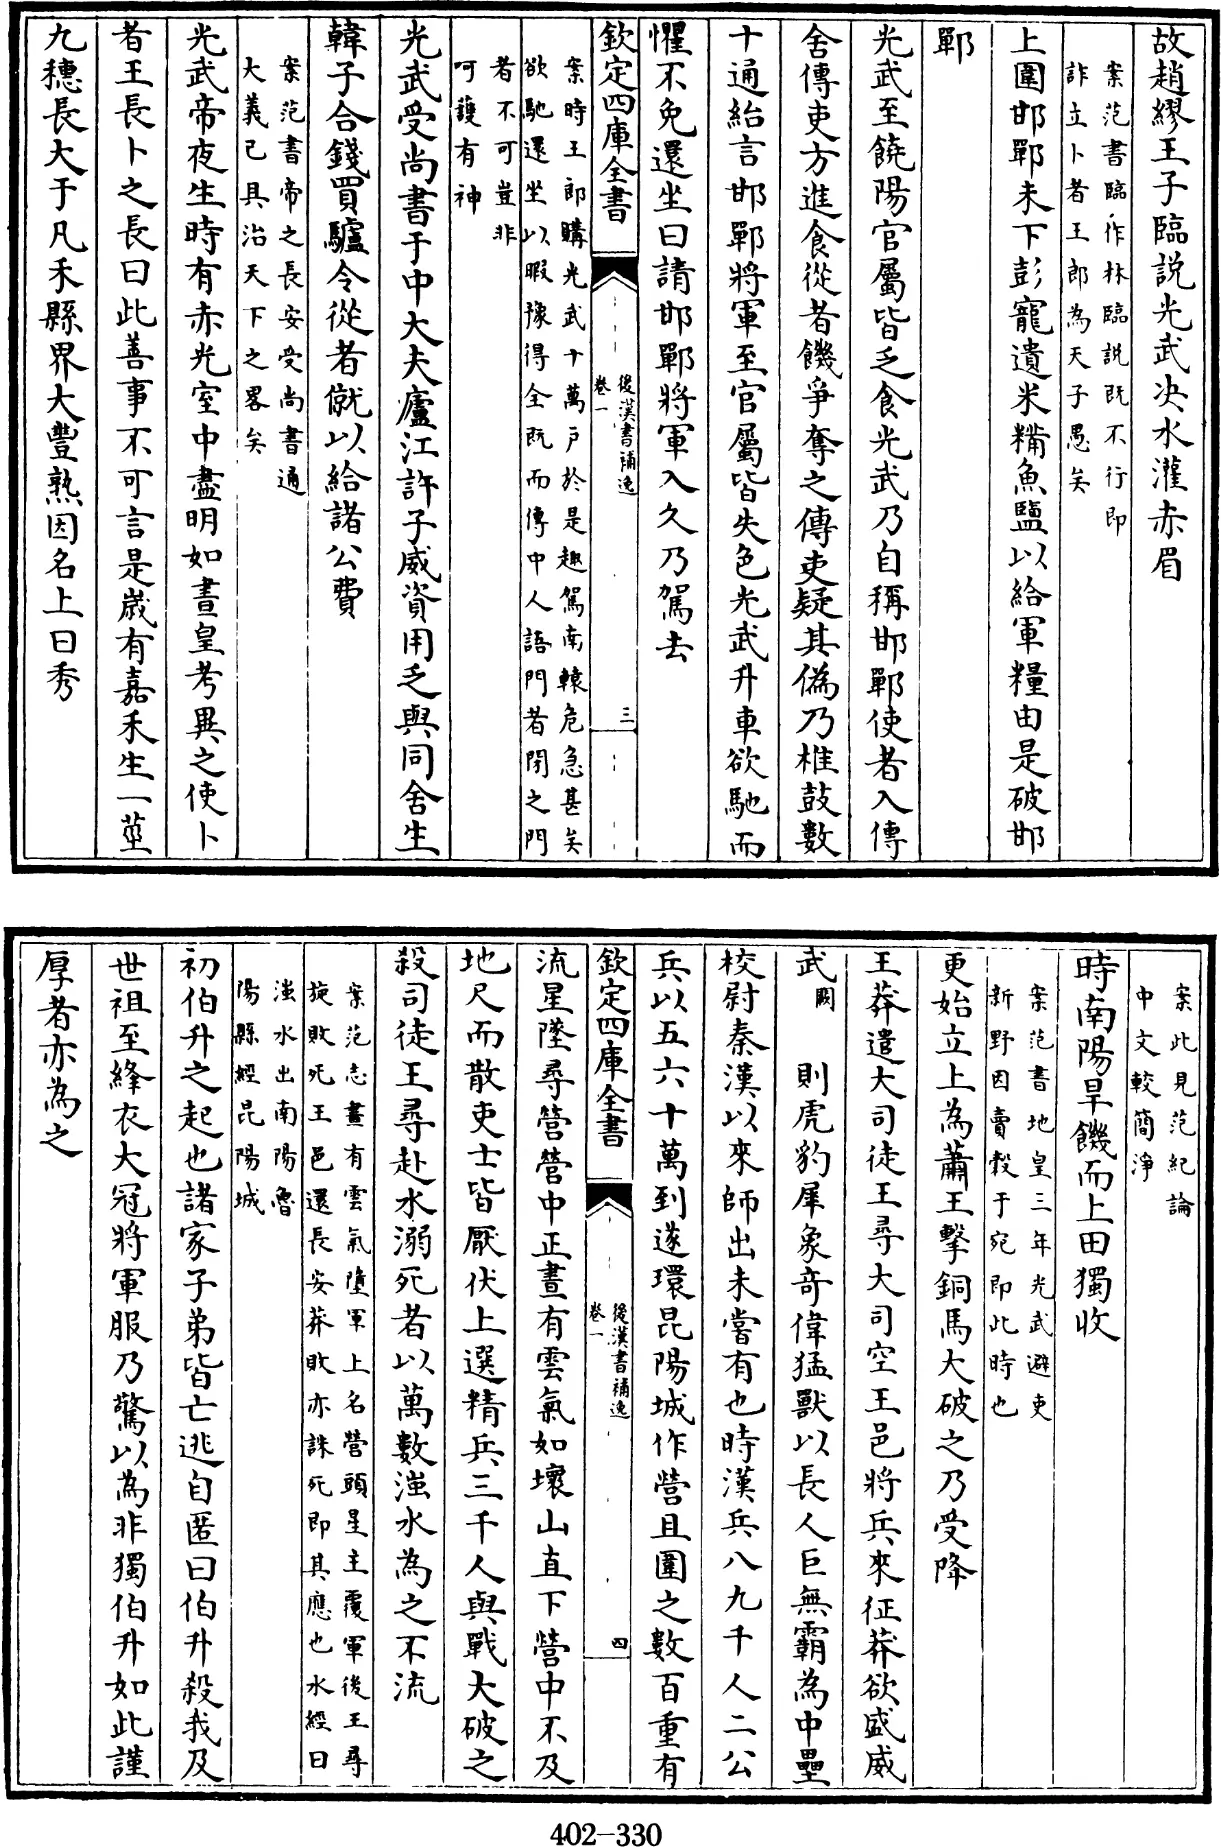 故趙繆王子臨說光武决水灌赤眉
案范書臨作林臨說既不行即
詐立卜者王郎為天子愚矣
上圍邯鄲未下彭寵遺米糒魚鹽以給軍糧由是破邯
鄲
光武至饒陽官屬皆乏食光武乃自稱邯鄲使者入傳
舍傳吏方進食從者饑爭奪之傳吏疑其偽乃椎鼓數
十通紿言邯鄲將軍至官屬皆失色光武升車欲馳而
懼不免還坐曰請邯鄲將軍入久乃駕去
欽定四庫全書
後漢書補逸
卷一
三
案時王郎購光武十萬戶於是趣駕南轅危急甚矣
欲馳還坐以暇豫得全既而傳中人語門者閉之門
者不可豈非
呵護有神
光武受尚書于中大夫廬江許子威資用乏與同舍生
韓子合錢買驢令從者僦以給諸公費
案范書帝之長安受尚書通
大義已具治天下之畧矣
光武帝夜生時有赤光室中盡明如晝皇考異之使卜
者王長卜之長曰此善事不可言是歲有嘉禾生一莖
九穗長大于凡禾縣界大豐熟因名上曰秀
案此見范紀論
中文較簡淨
時南陽旱饑而上田獨收
案范書地皇三年光武避吏
新野因賣穀于宛即此時也
更始立上為蕭王擊銅馬大破之乃受降
王莽遣大司徒王尋大司空王邑將兵來征莽欲盛威
武闕 則虎豹犀象奇偉猛獸以長人巨無霸為中壘
校尉秦漢以來師出未嘗有也時漢兵八九千人二公
兵以五六十萬到遂環昆陽城作營且圍之數百重有
欽定四庫全書
後漢書補逸
卷一
四
流星墜尋營營中正晝有雲氣如壞山直下營中不及
地尺而散吏士皆厭伏上選精兵三千人與戰大破之
殺司徒王尋赴水溺死者以萬數滍水為之不流
案范志晝有雲氣墮軍上名營頭星主覆軍後王尋
旋敗死王邑還長安莽敗亦誅死即其應也水經曰
滍水出南陽魯
陽縣經昆陽城
初伯升之起也諸家子弟皆亡逃自匿曰伯升殺我及
世祖至絳衣大冠將軍服乃驚以為非獨伯升如此謹
厚者亦為之
402-330